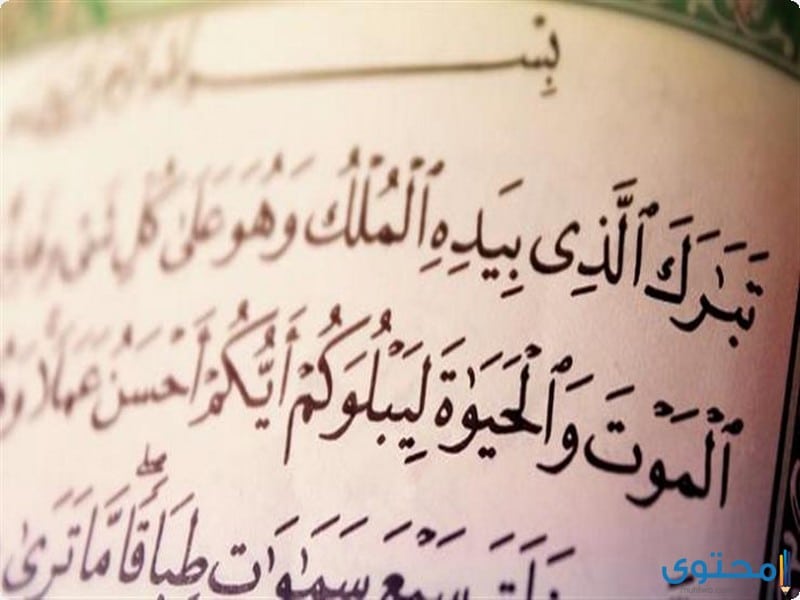 بِسْمِ
تَبَٰرَكَ ٱلَّذِى بِيَدِهِ ٱلْمُلْكُ وَهُوَ عَلَىٰ كُلِّ شَىْءٍ
ٱلْمَوْتَ وَٱلْحَيَوٰةَ لِيَبْلُوَكُمْ أَيُّكُمْ أَحْسَنُ عَمَلًا
خَلَقَ سَبْعَ سَمَٰوَٰتٍ طِبَاقًا ۖ مَّا تَرَىٰ
محتوى